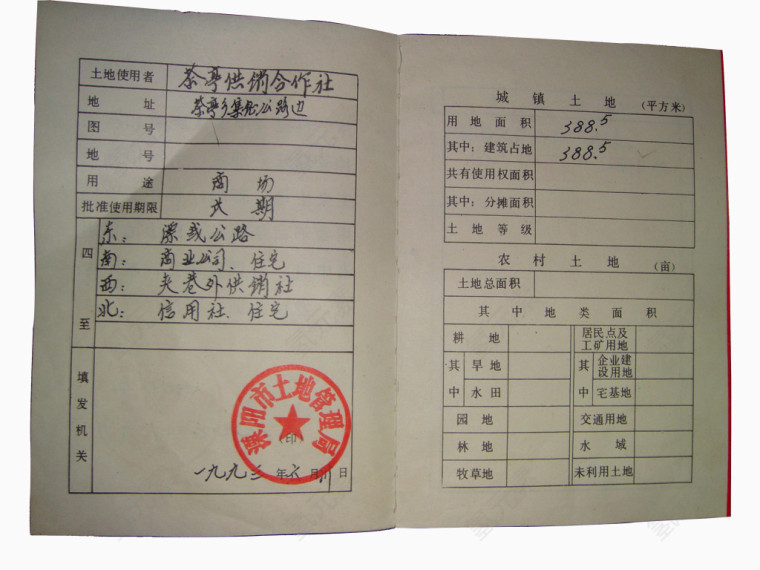 土地使用者 茶亭供销合作社
地 址 茶亭乡集镇公路边
图 号
地 号
用 途 商场
批准使用期限 长期
四至
东： 溧戴公路
南： 商业公司、住宅
西： 夹巷外供销社
北： 信用社、住宅
填发机关
溧阳市土地管理局
（印）
一九九三年六月 日
城镇土地 （平方米）
用地面积 388.5
其中：建筑占地 388.5
共有使用权面积
其中：分摊面积
土地等级
农村土地 （亩）
土地总面积
其中地类面积
耕 地 居民点及工矿用地
其中 旱地 其中 企业建设用地
水田 宅基地
园 地 交通用地
林 地 水 域
牧草地 未利用土地